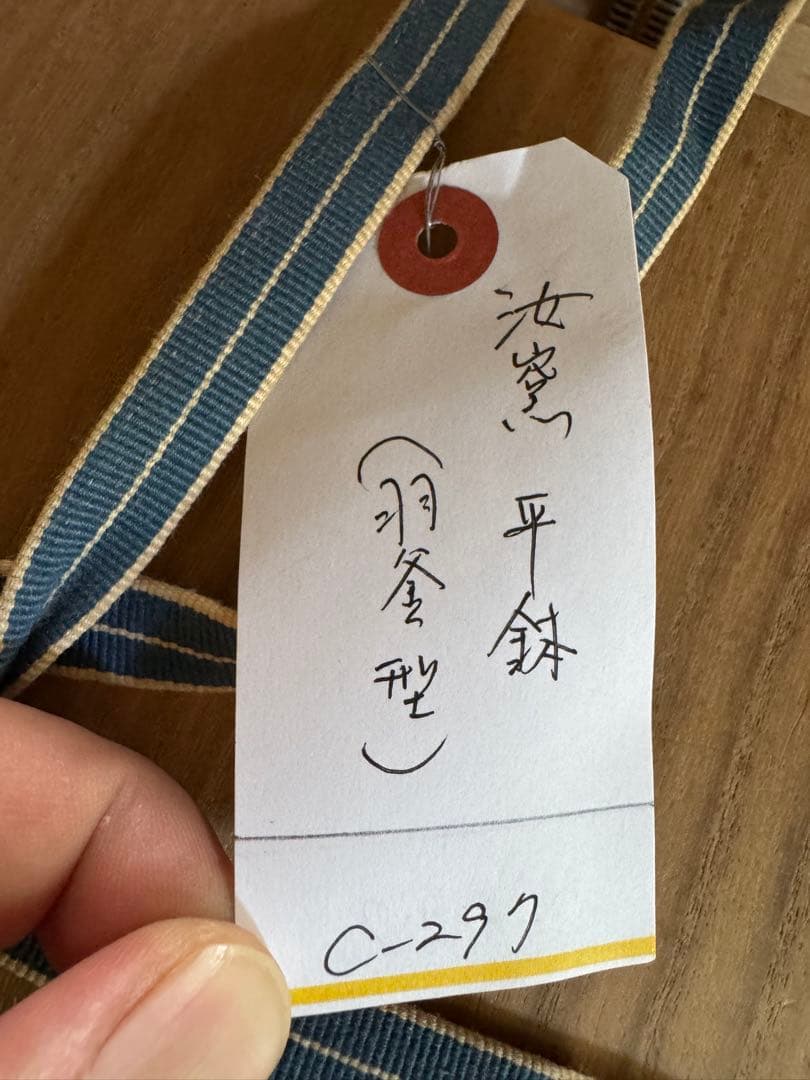 汝窯 平鉢
（羽釜型）
C-297